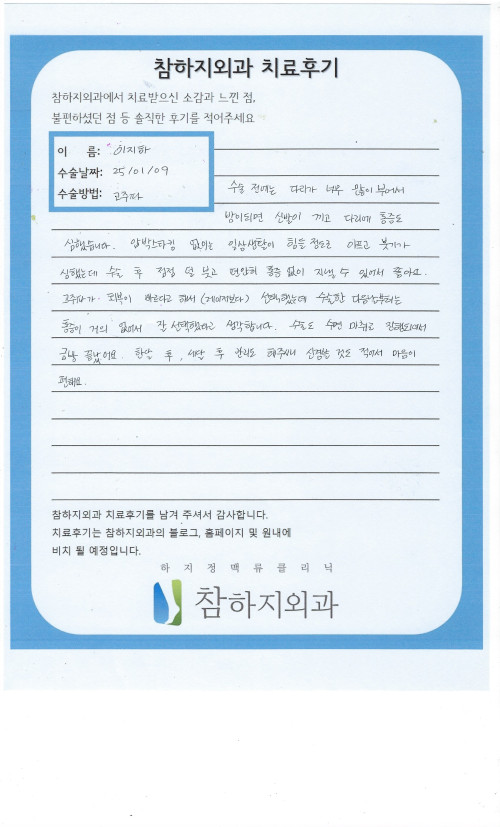 참하지외과 치료후기
참하지외과에서 치료받으신 소감과 느낀 점,
불편하셨던 점 등 솔직한 후기를 적어주세요
이 름: 이지하
수술날짜: 25/01/09
수술방법: 고주파
수술 전에는 다리가 너무 많이 부어서
밤이되면 신발이 끼고 다리에 통증도
심했습니다. 압박스타킹 없이는 일상생활이 힘들 정도로 아프고 붓기가
심했는데 수술 후 점점 덜 붓고 편안히 통증 없이 지낼 수 있어서 좋아요.
고주파가 회복이 빠르다고 해서 (레이저보다) 선택했는데 수술한 다음날부터는
통증이 거의 없어서 잘 선택했다고 생각합니다. 수술도 수면 마취로 진행되어서
금방 끝났어요. 한달 후, 세달 후 관리도 해주시니 신경쓸 것도 적어서 마음이
편해요.
참하지외과 치료후기를 남겨 주셔서 감사합니다.
치료후기는 참하지외과의 블로그, 홈페이지 및 원내에
비치 될 예정입니다.
하지정맥류클리닉
참하지외과